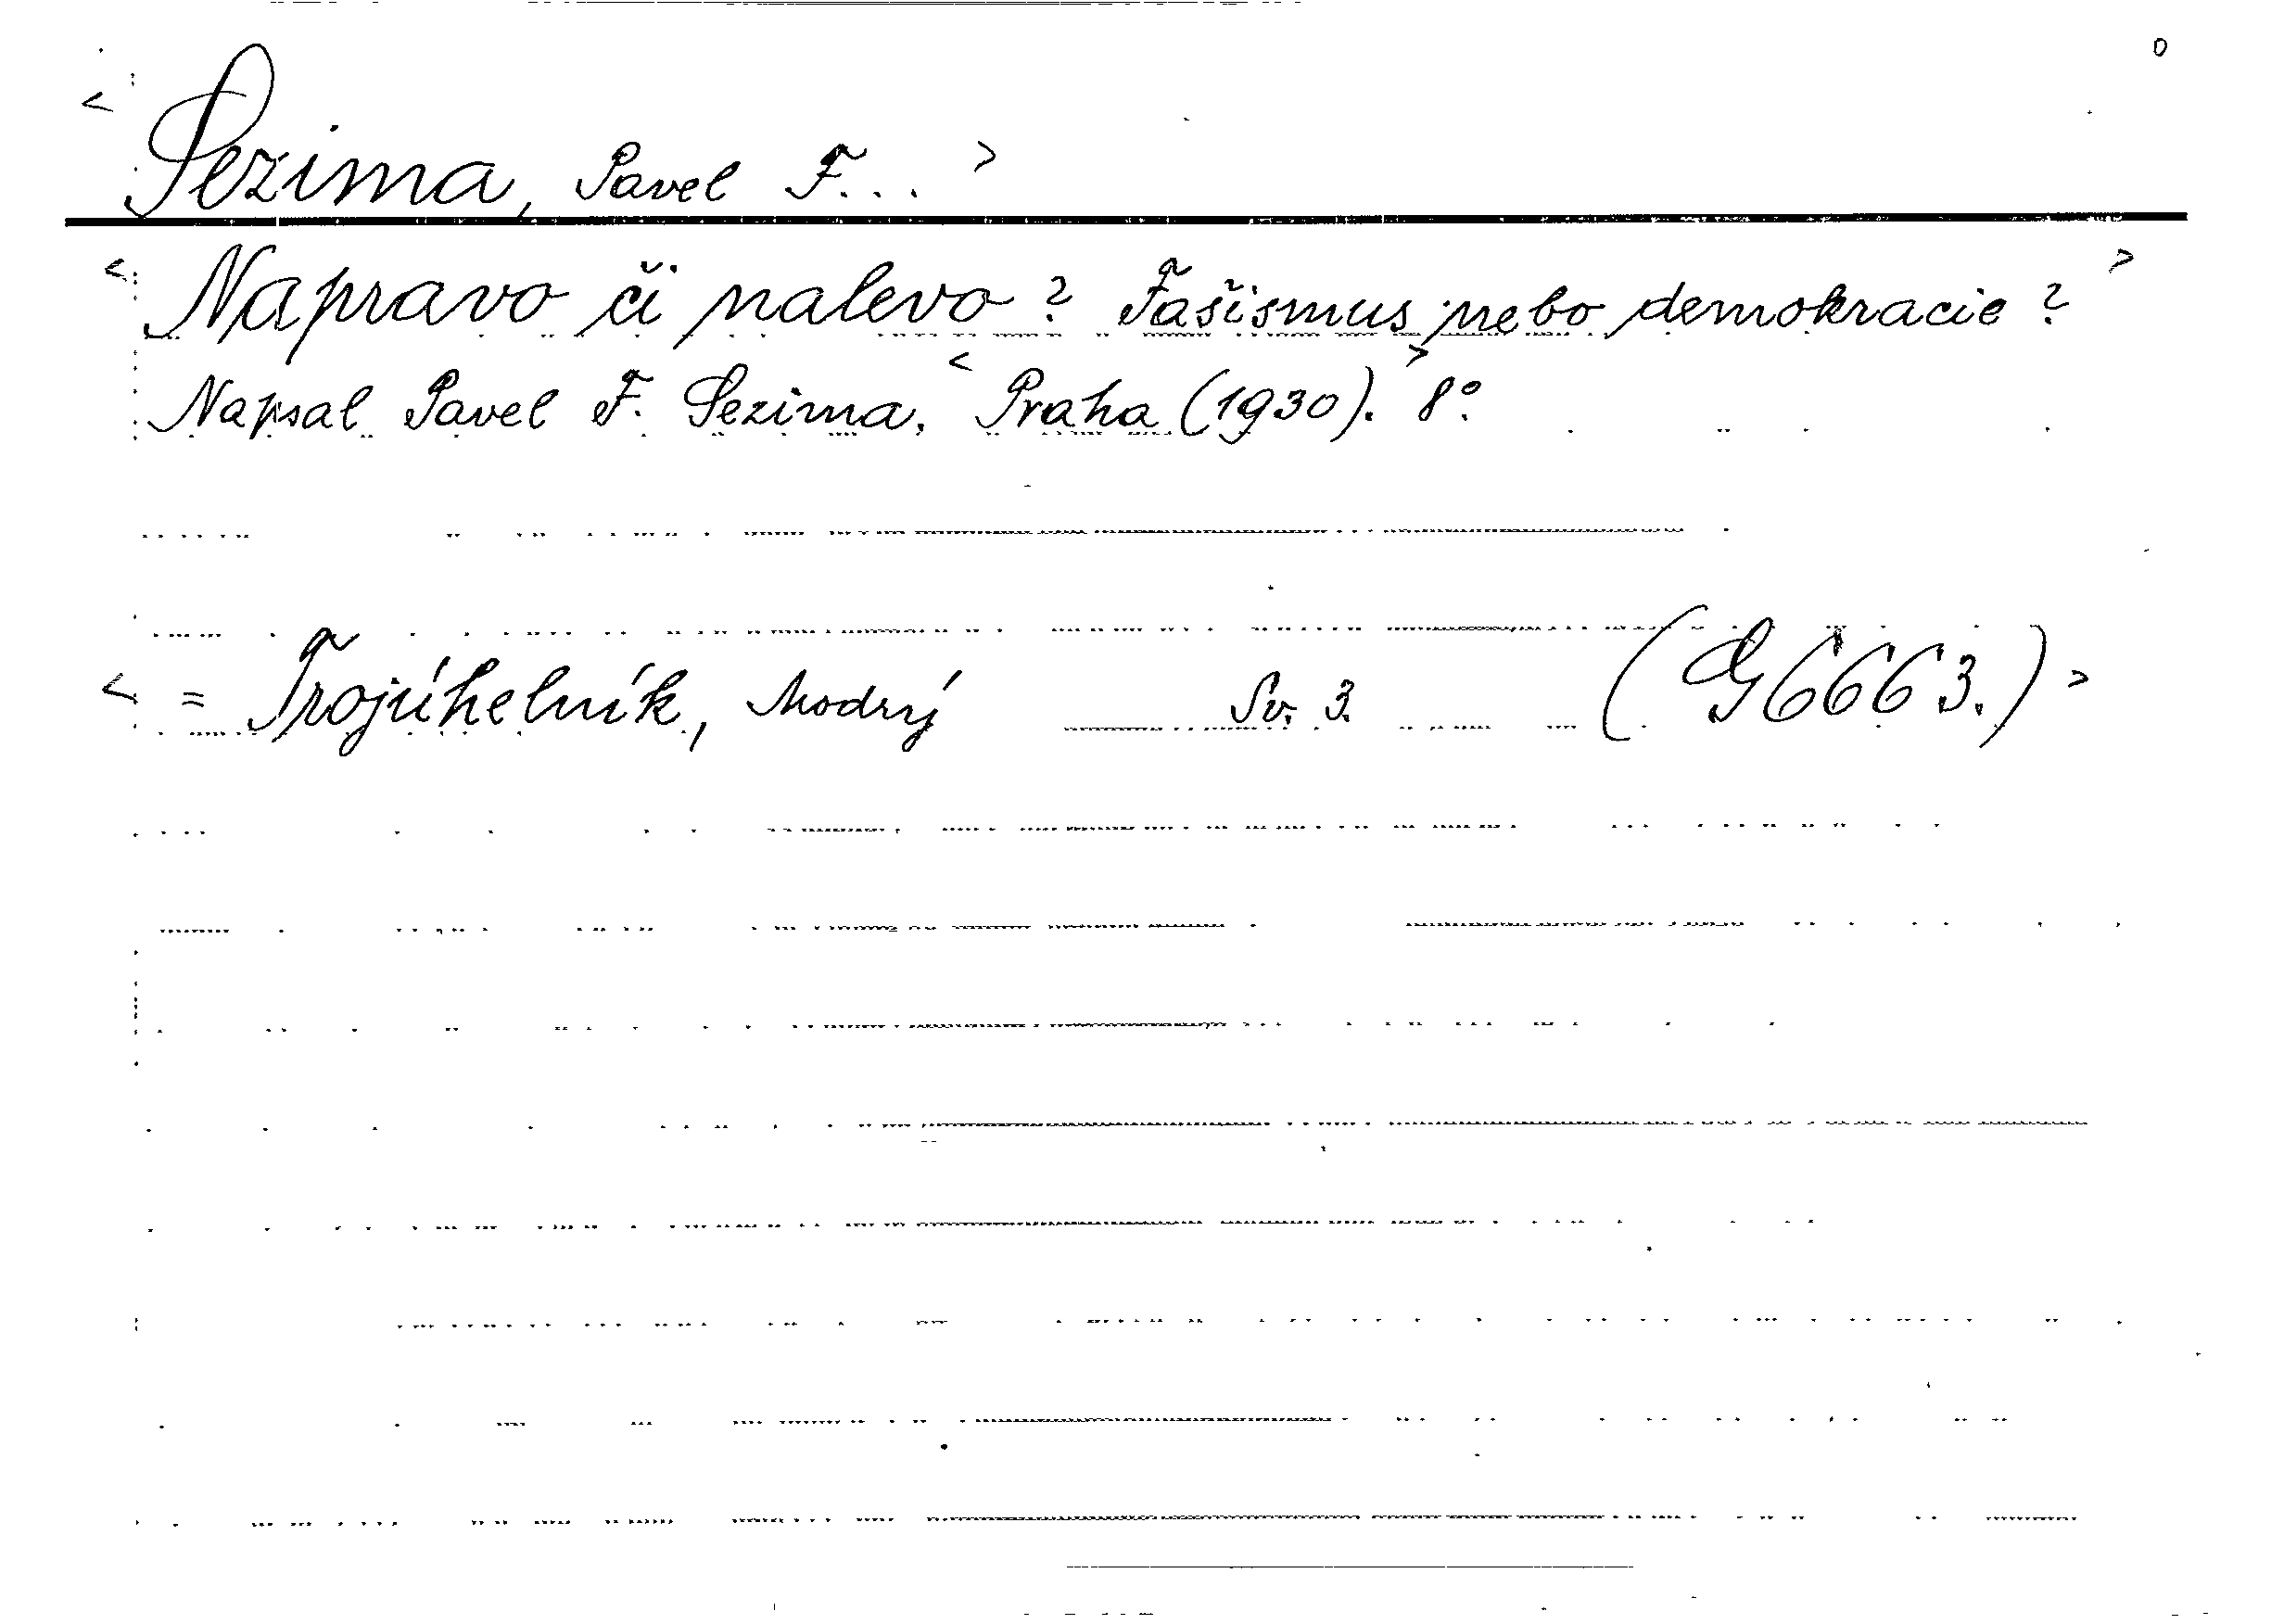 < Sezima, Pavel F... >
< Napravo či nalevo? Fašismus nebo demokracie? >
Napsal Pavel F. Sezima. < Praha (1930). > 8°.
< = Trojúhelník, Modrý Sv. 3. (G 6663.) >